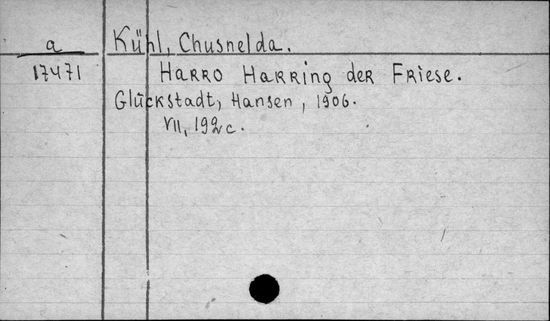 a Kühl, Chusnelda.
17471 Harro Harring der Friese.
Glückstadt, Hansen, 1906.
VII, 192 c.